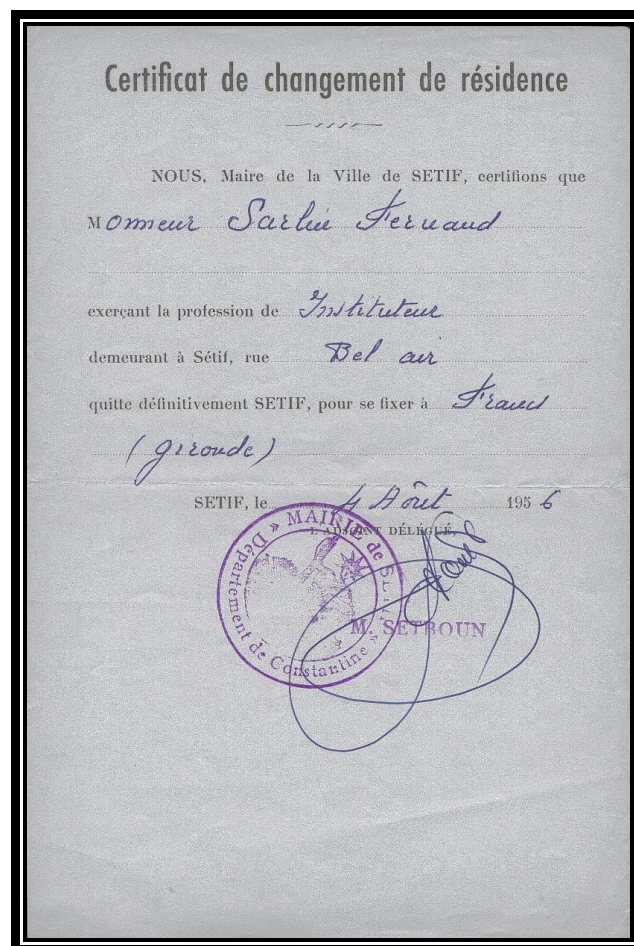 Certificat de changement de résidence
NOUS, Maire de la Ville de SETIF, certifions que
Monsieur Sarlin Fernand
exerçant la profession de Instituteur
demeurant à Sétif, rue Bel air
quitte définitivement SETIF, pour se fixer à France
(Gironde)
SETIF, le 4 Août 1956
L'ADJOINT DÉLÉGUÉ,
MAIRIE de SETIF
Département de Constantine
M. SETBOUN